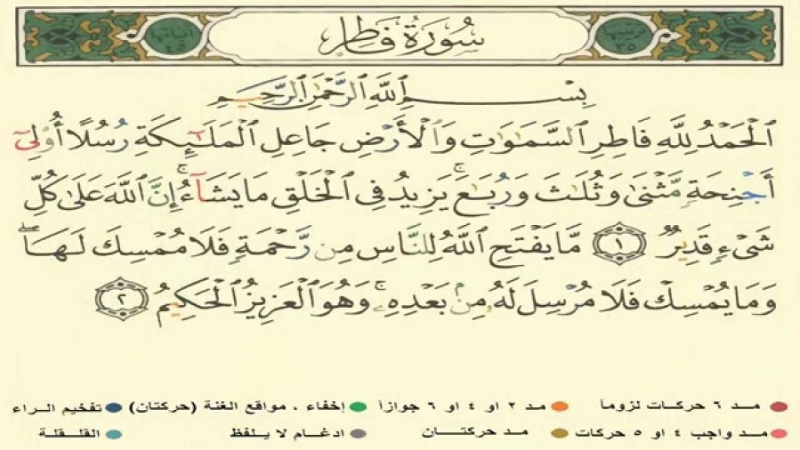 سُورَةُ فَاطِرٍ
ترتيبها ٣٥
آياتها ٤٥
بِسْمِ ٱللَّهِ ٱلرَّحْمَٰنِ ٱلرَّحِيمِ
ٱلْحَمْدُ لِلَّهِ فَاطِرِ ٱلسَّمَٰوَٰتِ وَٱلْأَرْضِ جَاعِلِ ٱلْمَلَٰٓئِكَةِ رُسُلًا أُو۟لِىٓ
أَجْنِحَةٍ مَّثْنَىٰ وَثُلَٰثَ وَرُبَٰعَ ۚ يَزِيدُ فِى ٱلْخَلْقِ مَا يَشَآءُ ۚ إِنَّ ٱللَّهَ عَلَىٰ كُلِّ
شَىْءٍ قَدِيرٌ ١ مَّا يَفْتَحِ ٱللَّهُ لِلنَّاسِ مِن رَّحْمَةٍ فَلَا مُمْسِكَ لَهَا ۖ
وَمَا يُمْسِكْ فَلَا مُرْسِلَ لَهُۥ مِنۢ بَعْدِهِۦ ۚ وَهُوَ ٱلْعَزِيزُ ٱلْحَكِيمُ ٢
مد ٦ حركات لزوماً مد ٢ او ٤ او ٦ جوازاً إخفاء ، مواقع الغنة (حركتان) تفخيم الراء
مد واجب ٤ او ٥ حركات مد حركتان ادغام لا يلفظ القلقلة